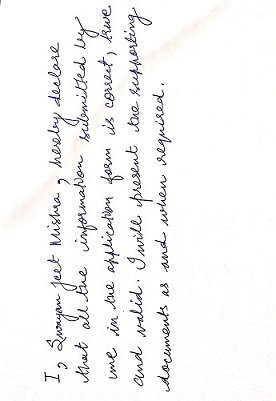 I, Swayam Jeet Mishra, hereby declare
that all the information submitted by
me in the application form is correct, true
and valid. I will present the supporting
documents as and when required.